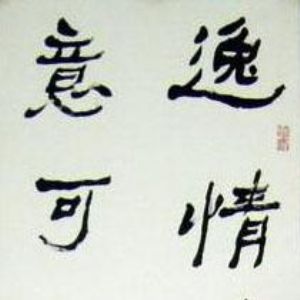 逸情
意可